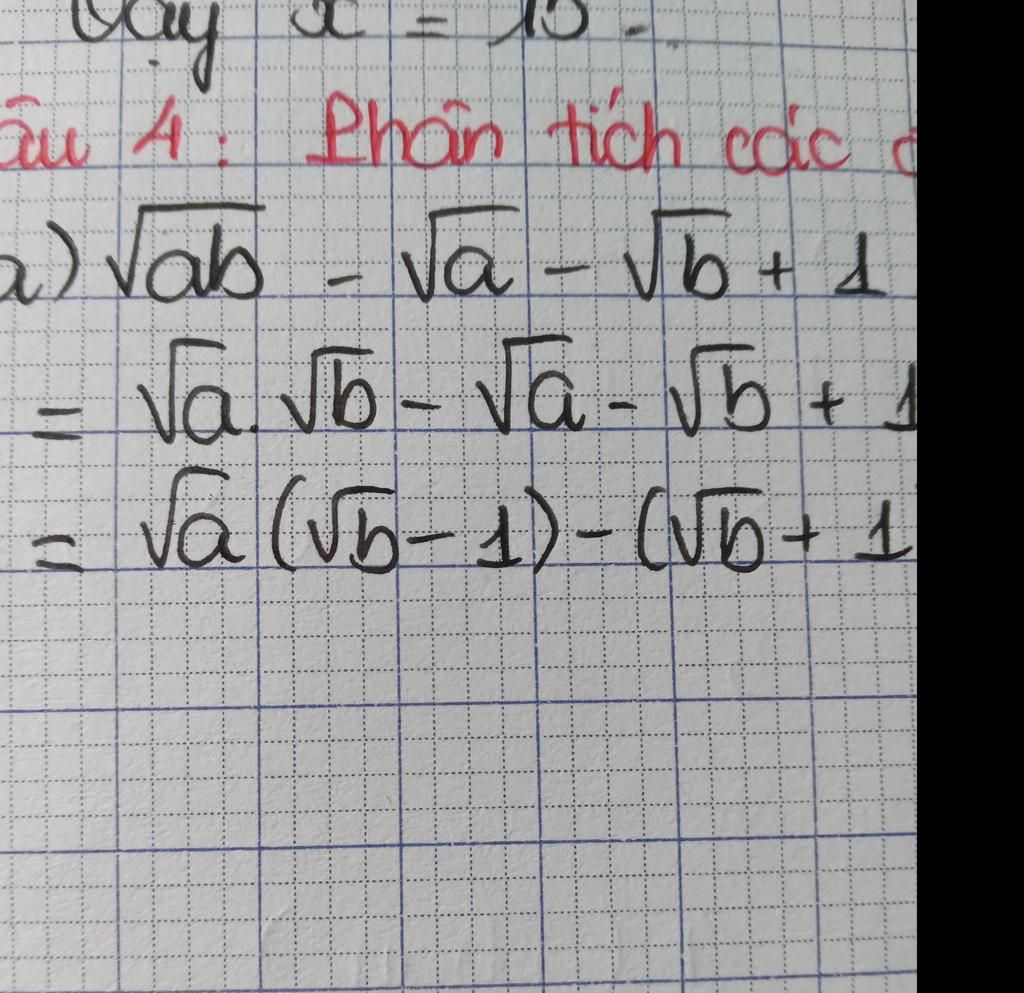 Vậy x = 15.
âu 4: Phân tích các
a) √ab - √a - √b + 1
= √a.√b - √a - √b + 1
= √a (√b - 1) - (√b + 1